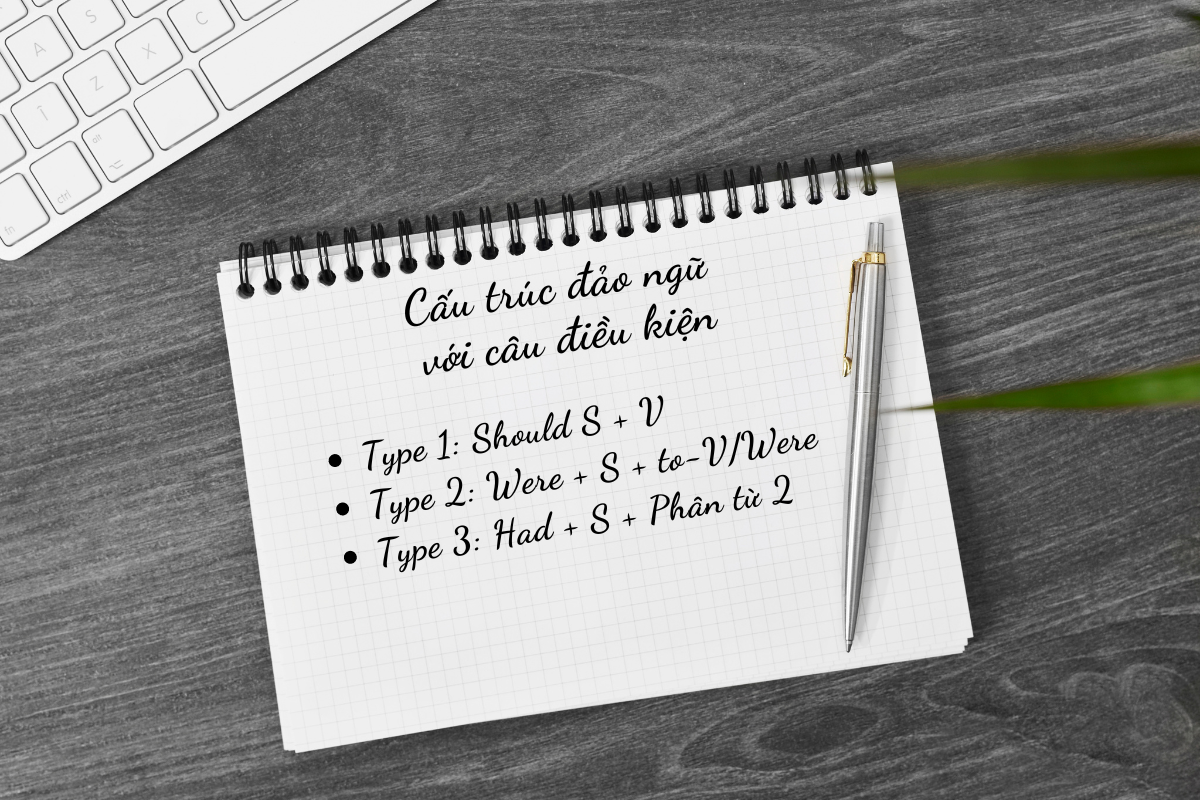 A
S
C
Z
X
Î
alt
ctrl
fn
Cấu trúc đảo ngữ
với câu điều kiện
• Type 1: Should S + V
• Type 2: Were + S + to-V/Were
• Type 3: Had + S + Phân từ 2